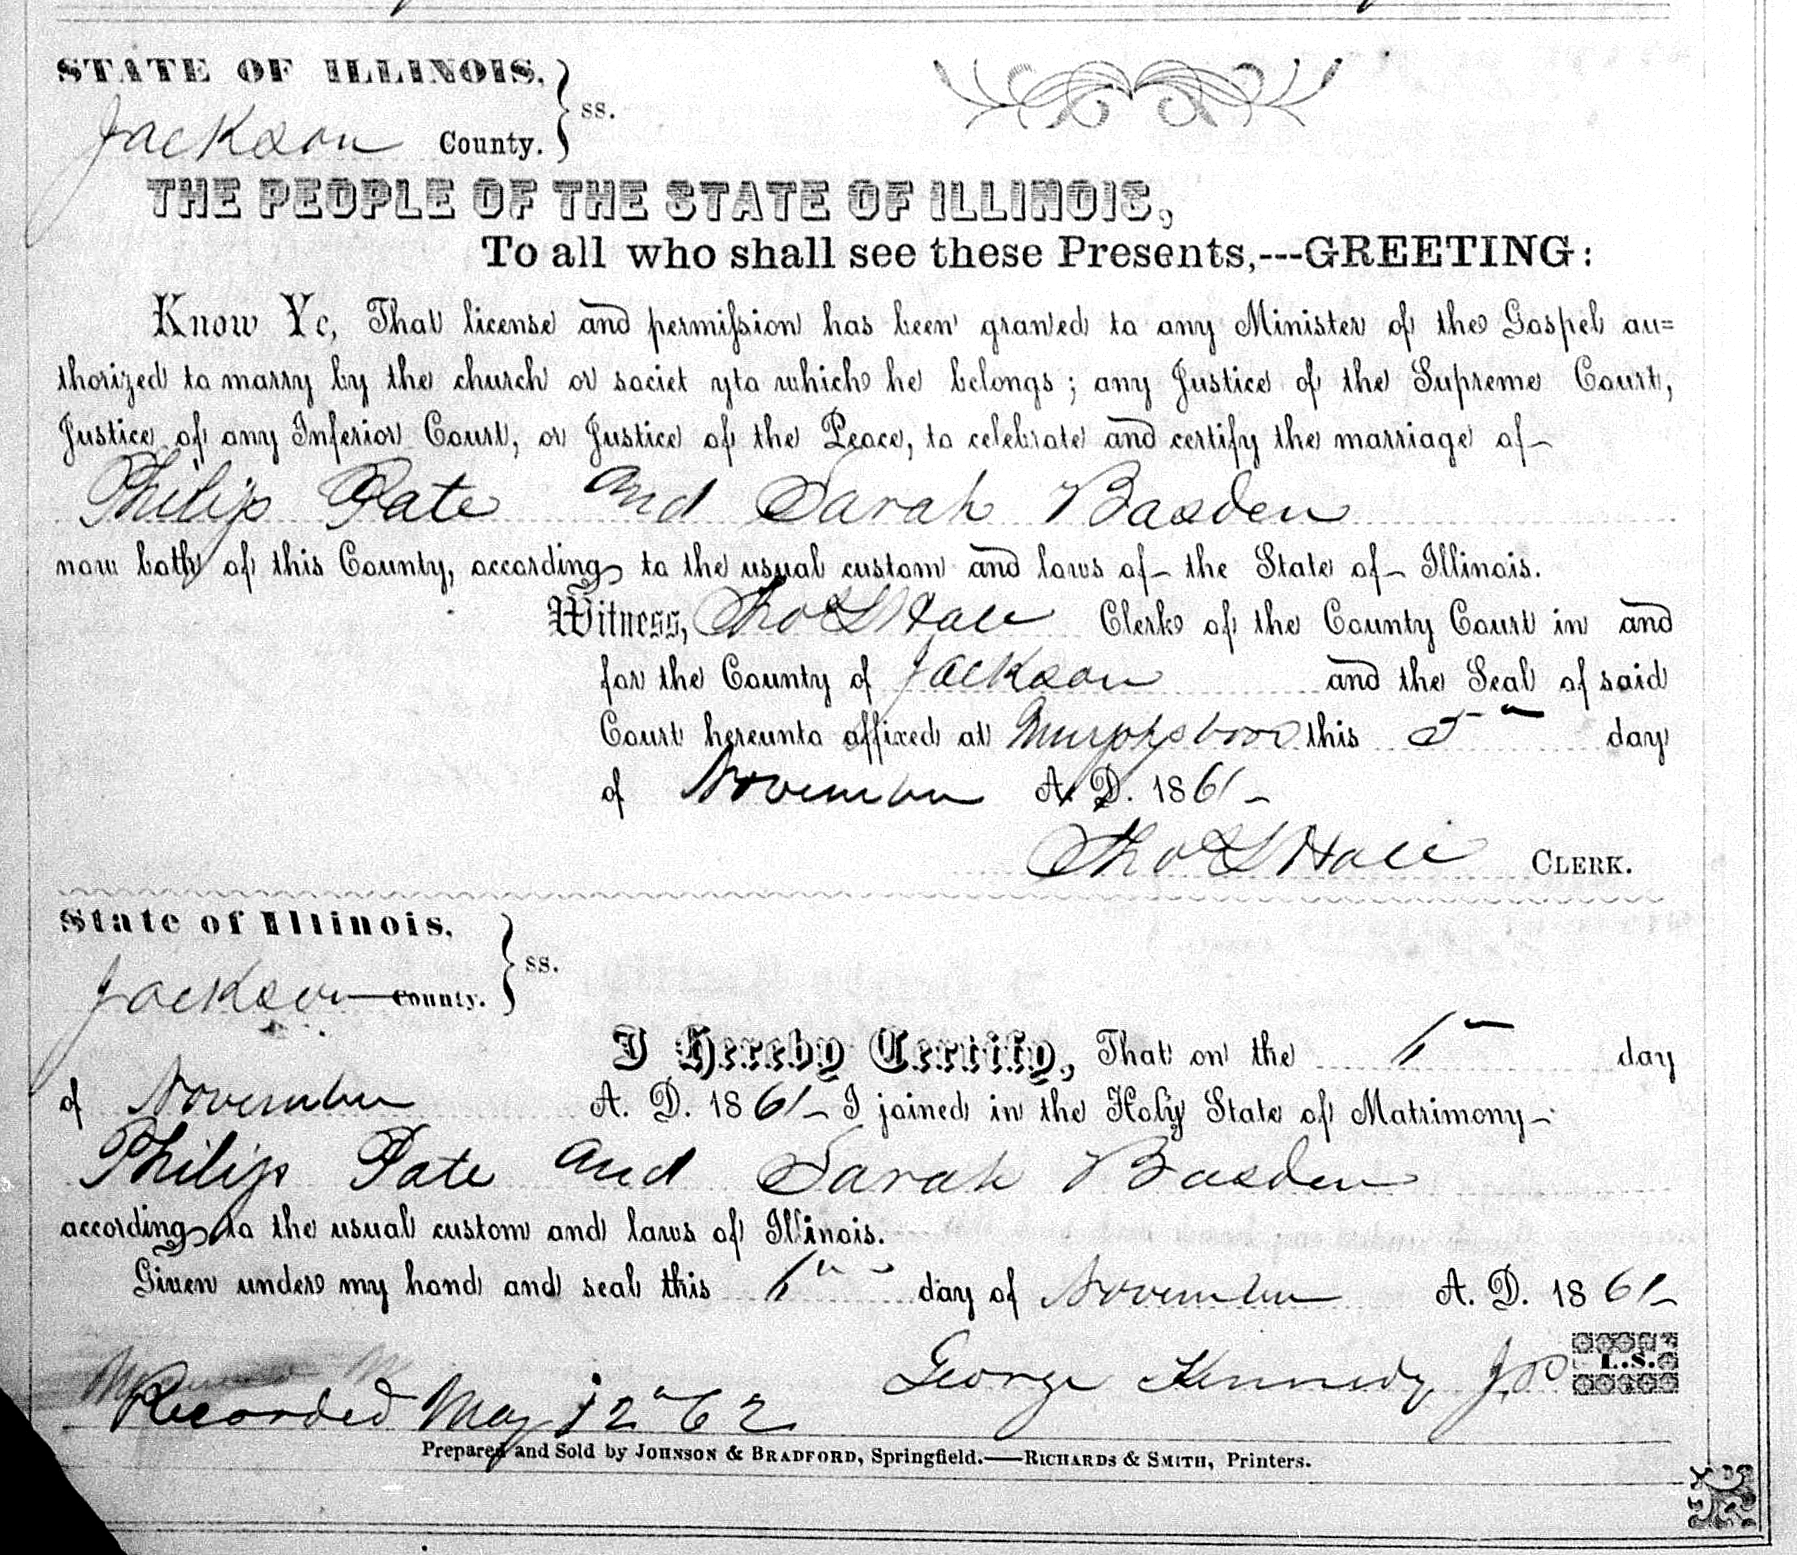 STATE OF ILLINOIS,
Jackson County. } ss.
THE PEOPLE OF THE STATE OF ILLINOIS,
To all who shall see these Presents,---GREETING:
Know Ye, That license and permission has been granted to any Minister of the Gospel au=
thorized to marry by the church or societ yto which he belongs; any Justice of the Supreme Court,
Justice of any Inferior Court, or Justice of the Peace, to celebrate and certify the marriage of
Philip Pate and Sarah Basden
now both of this County, according to the usual custom and laws of the State of Illinois.
Witness, Tho L Hall Clerk of the County Court in and
for the County of Jackson and the Seal of said
Court hereunto affixed at Murphysboro this 5" day
of November A. D. 1861
Tho L Hall CLERK.
State of Illinois,
Jackson County. } ss.
I Hereby Certify, That on the day
of November A. D. 1861 I joined in the Holy State of Matrimony
Philip Pate and Sarah Basden
according to the usual custom and laws of Illinois.
Given under my hand and seal this day of November A. D. 1861
George Kennedy JP L.S.
Recorded May 12" 62
Prepared and Sold by JOHNSON & BRADFORD, Springfield.—RICHARDS & SMITH, Printers.